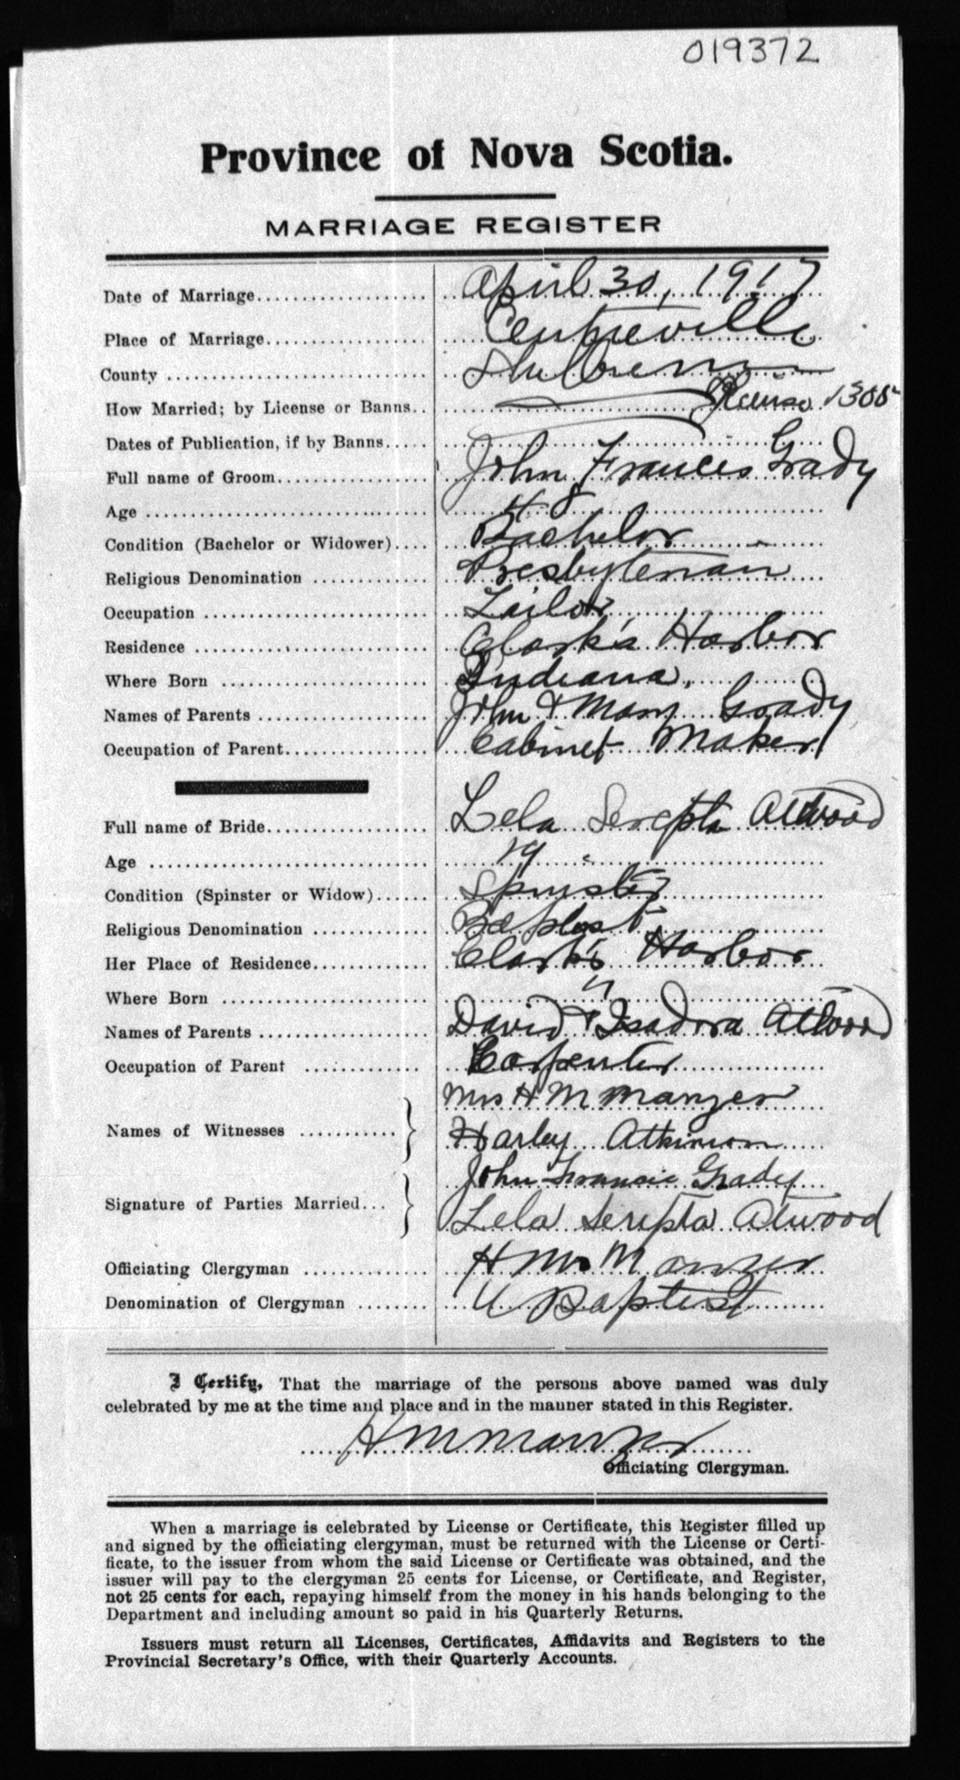 019372
Province of Nova Scotia.
MARRIAGE REGISTER
Date of Marriage.................. April 30, 1917
Place of Marriage................. Centreville
County ........................ Shelburne
How Married; by License or Banns.. License 1305
Dates of Publication, if by Banns.....
Full name of Groom................. John Frances Grady
Age ........................... 48
Condition (Bachelor or Widower).... Bachelor
Religious Denomination ............ Presbyterian
Occupation ....................... Tailor
Residence ........................ Clark's Harbor
Where Born ...................... Indiana.
Names of Parents ................. John & Mary Grady
Occupation of Parent.............. Cabinet Maker
Full name of Bride................ Lela Serepta Attwood
Age ........................... 19
Condition (Spinster or Widow)...... Spinster
Religious Denomination ............ Baptist
Her Place of Residence............ Clark's Harbor
Where Born ...................... "
Names of Parents ................. David & Isadora Attwood
Occupation of Parent ............ Carpenter
Mrs H M Manzer
Names of Witnesses ...........
Harley Atkinson
John Francis Grady
Signature of Parties Married...
Lela Serepta Atwood
Officiating Clergyman ............ H M Manzer
Denomination of Clergyman ........ U Baptist
I Certify, That the marriage of the persons above named was duly
celebrated by me at the time and place and in the manner stated in this Register.
H M Manzer
Officiating Clergyman.
When a marriage is celebrated by License or Certificate, this Register filled up
and signed by the officiating clergyman, must be returned with the License or Certi-
ficate, to the issuer from whom the said License or Certificate was obtained, and the
issuer will pay to the clergyman 25 cents for License, or Certificate, and Register,
not 25 cents for each, repaying himself from the money in his hands belonging to the
Department and including amount so paid in his Quarterly Returns.
Issuers must return all Licenses, Certificates, Affidavits and Registers to the
Provincial Secretary's Office, with their Quarterly Accounts.